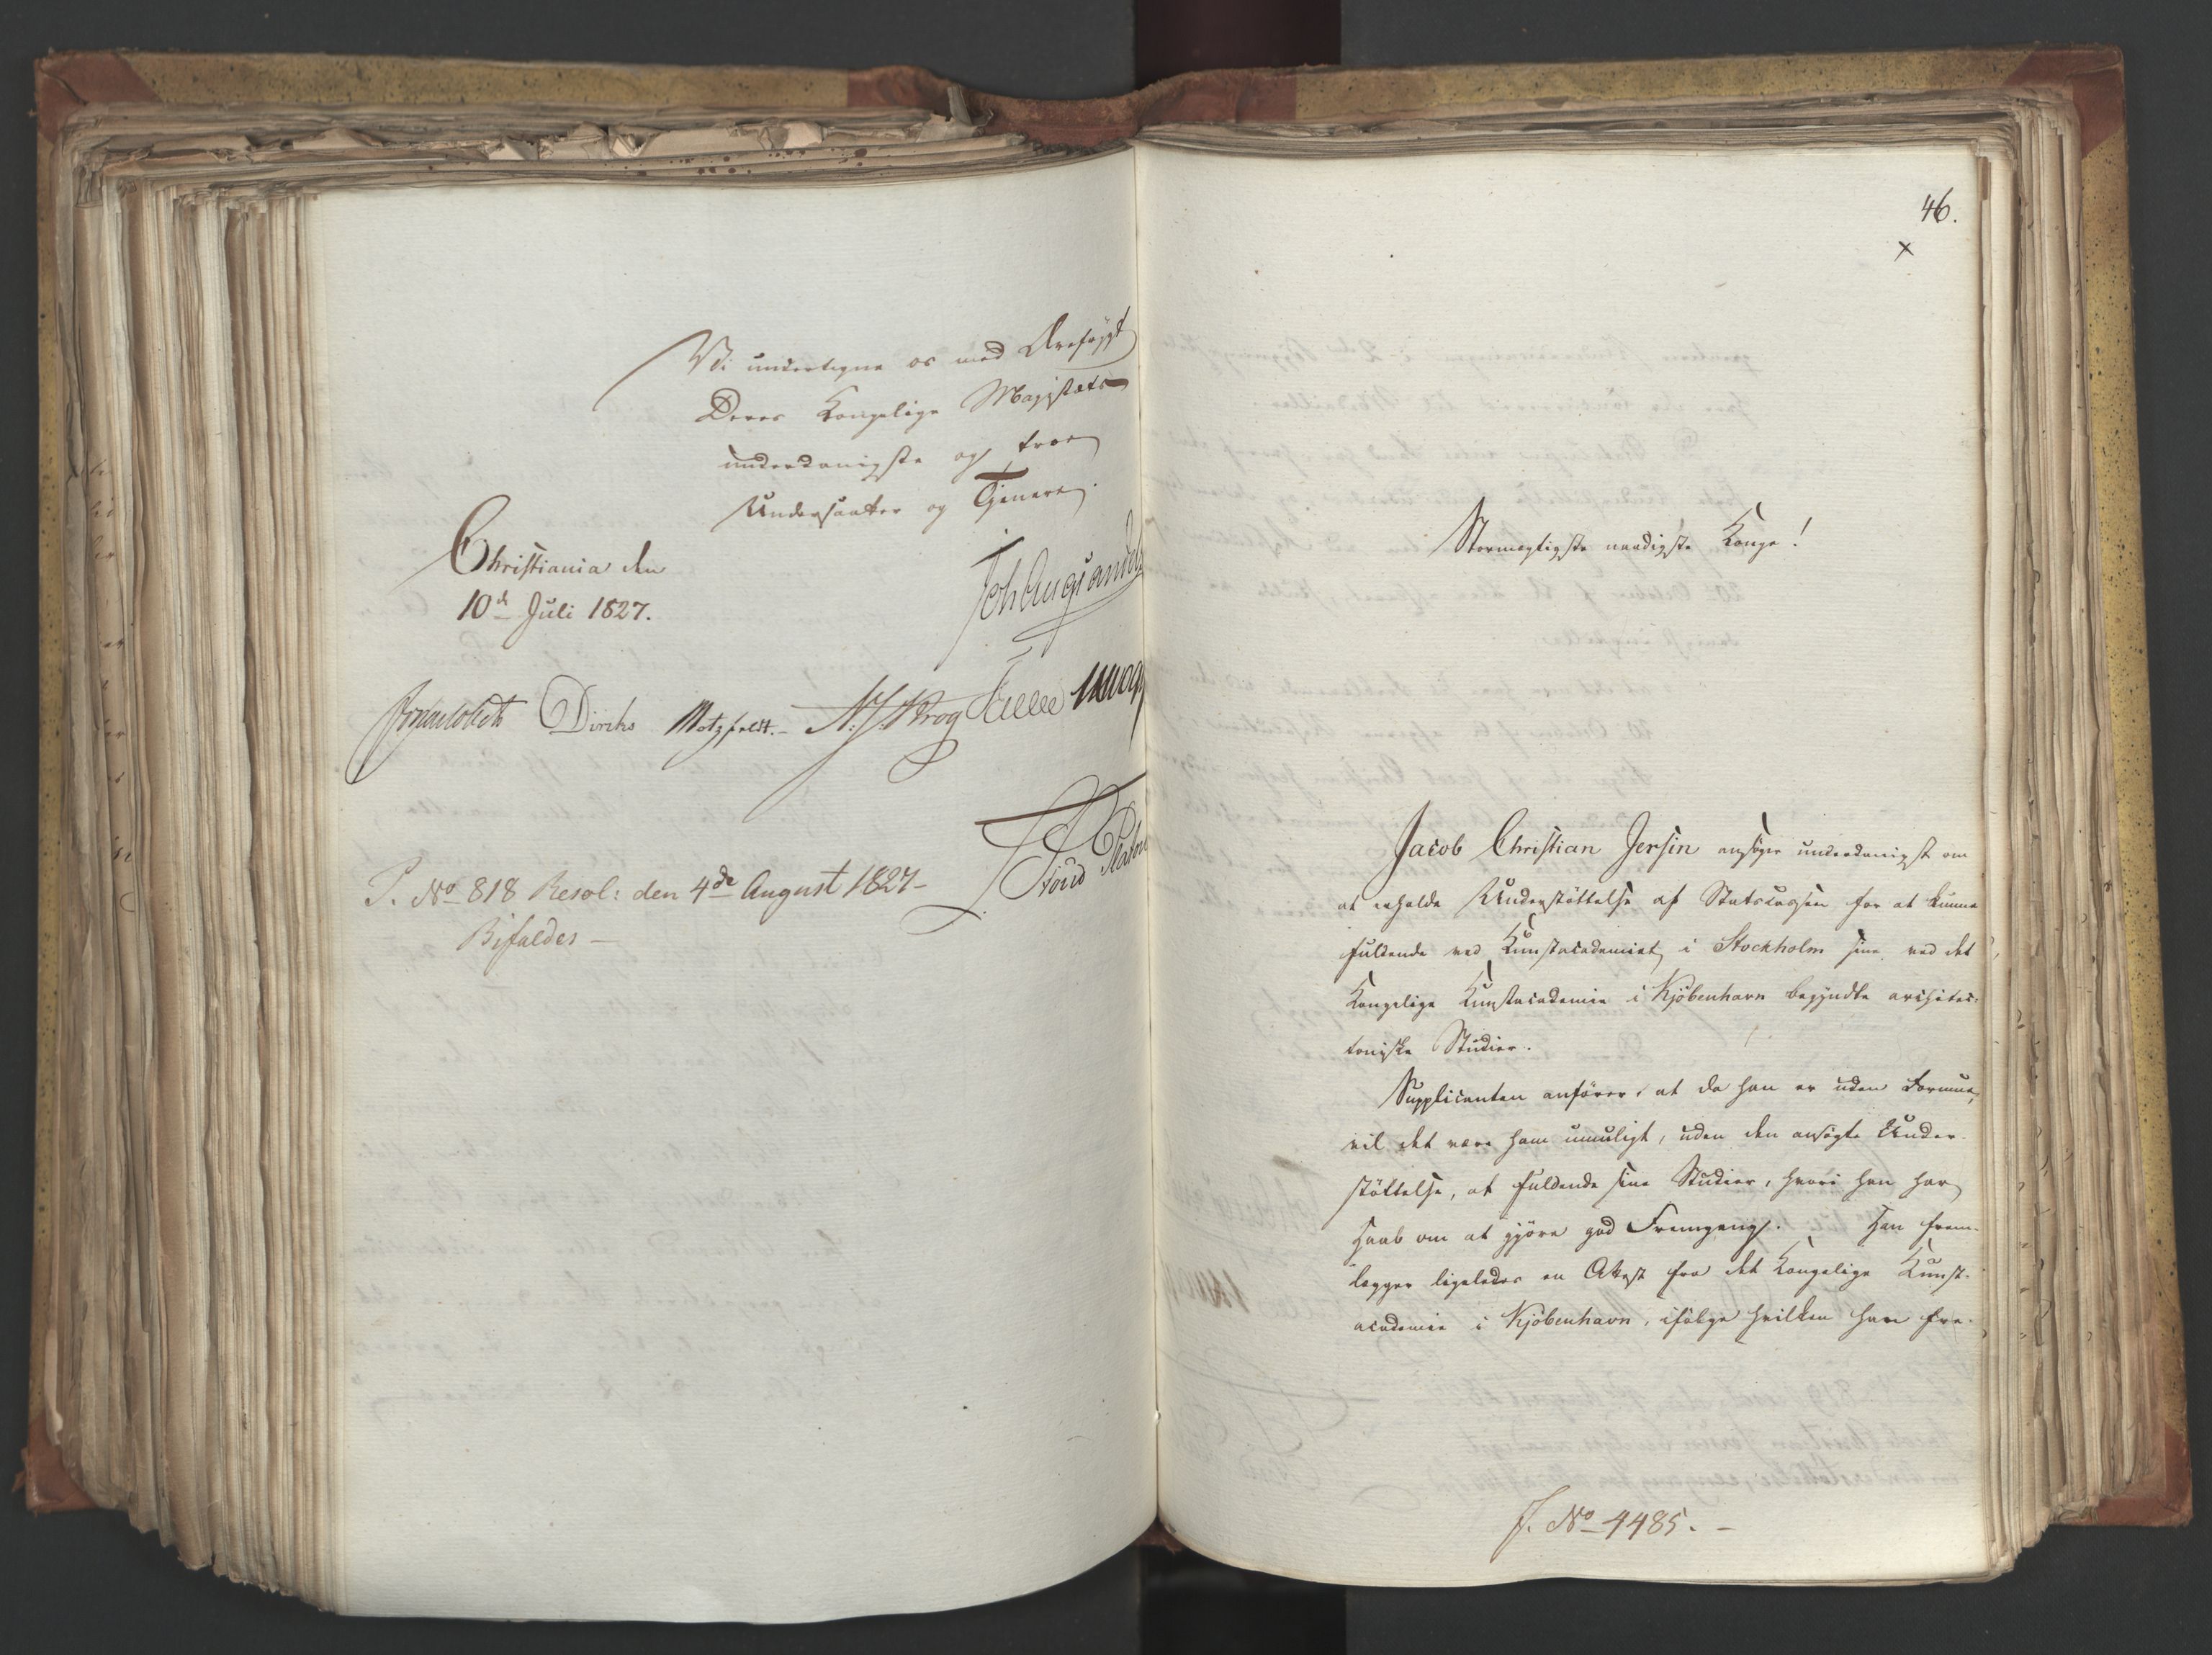 Vi undertegne os med Ærefrygt
Deres Kongelige Majestæts
underdanigste og troe
Undersaatter og Tjenere.
Christiania den
10de Juli 1827.
Diriks Motzfeldt.- Krog
P. No 818 Resol: den 4de August 1827-
Bifaldes-
46.
x
Stormægtigste naadigste Konge!
Jacob Christian Jersin ansøger underdanigst om
at erholde Understöttelse af Statscassen for at kunne
fuldende ved Kunstacademiet i Stockholm sine ved det
Kongelige Kunstacademie i Kjöbenhavn begyndte architec-
toniske Studier.
Supplicanten anförer, at da han er uden Formue,
vil det være ham umuligt, uden den ansögte Under-
stöttelse, at fuldende sine Studier, hvori han har
Haab om at gjöre god Fremgang. Han frem-
lægger ligeledes en Attest fra det Kongelige Kunst-
academie i Kjöbenhavn, ifölge hvilken han fre-
J. No 4485.-